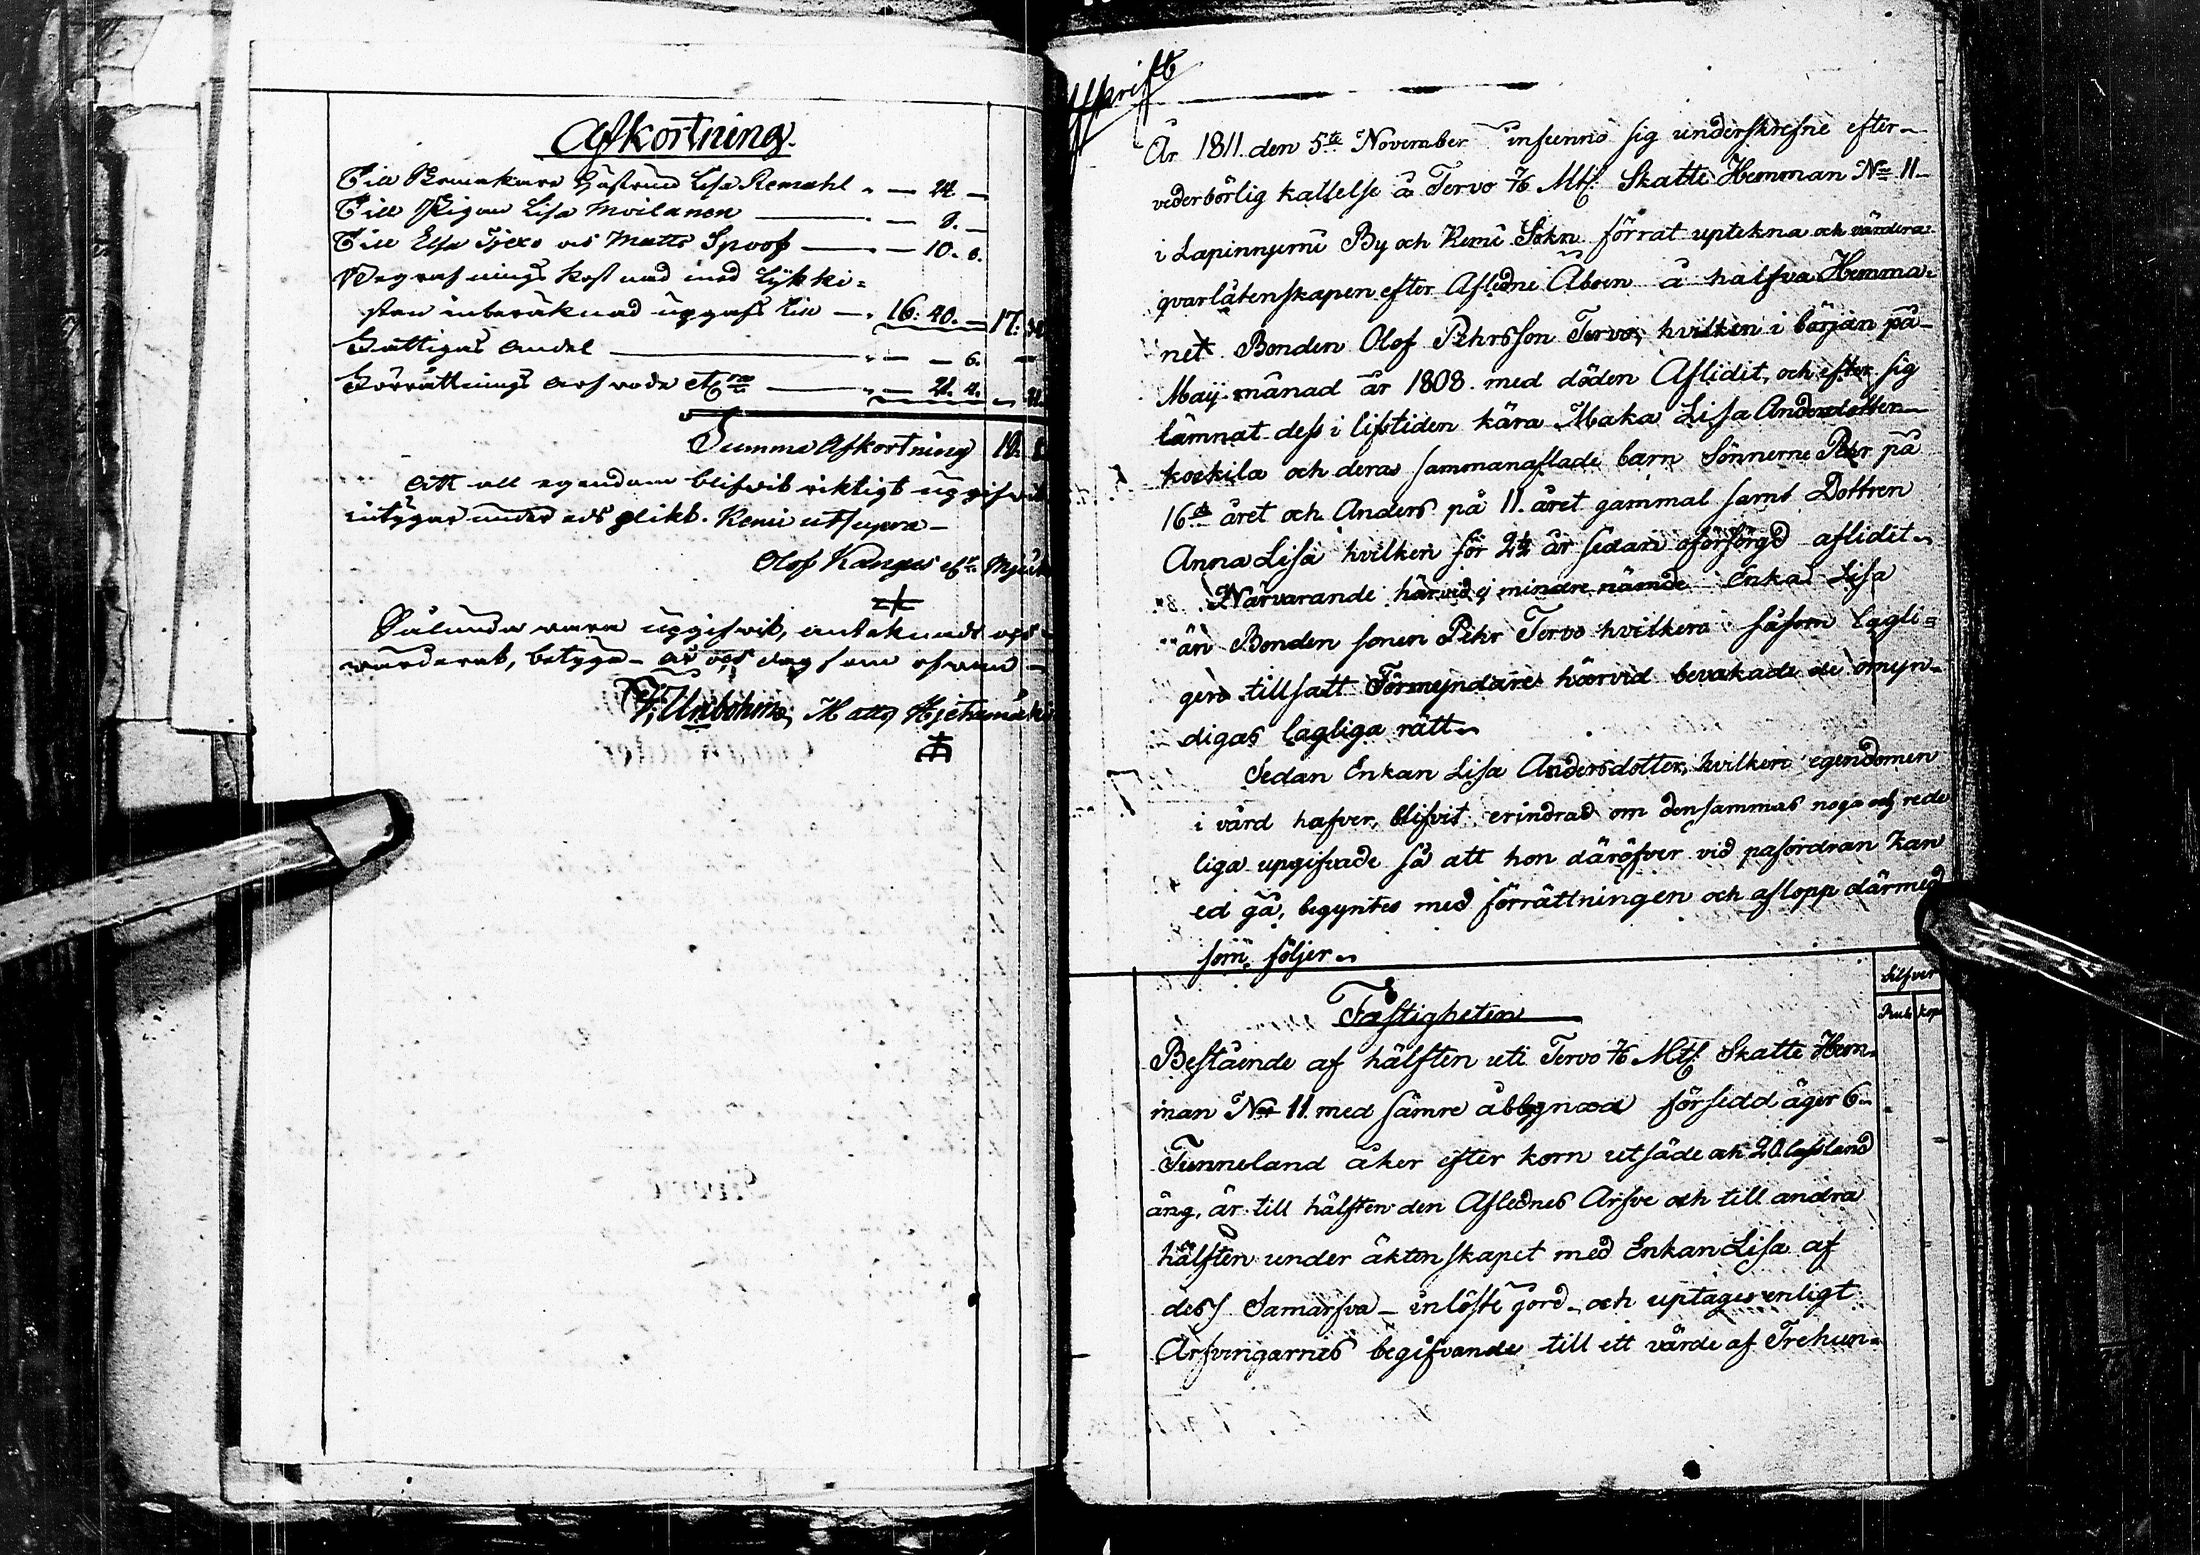 Afkortning.
Till Lisa Remahl — 24 —
Till Pigan Lisa Moilanen — 8. —
Till Elsa och Matts Spoof — 10. 6.
Begrafnings Kostnad med Lijkki=
stan inberäknad upgafs till — 16: 40. — 17:
Fattigas andel — 6.
Förrättnings arfvode etc — 24. 4.
Summa Afkortning 18:
Att all egendom blifvit riktigt uppgifvit
intygar under eds plikt. Kemi ut supra —
Olof Kangas
Sålunda vara uppgifvit, anteknadt och
värderat, betyga — år och dag som ofvan —
Matts
Afskrift
År 1811. den 5te November infunno sig underskrefne efter
vederbörlig kallelse å Tervo Mtl. Skatte Hemman No 11
i Lapinnjemi By och Kemi Sokn förrat uptekna och värdera
qvarlåtenskapen efter Aflidne Åboen å halfva Hemma=
net Bonden Olof Pehrsson Tervo, hvilken i början på
Maij månad år 1808. med döden Aflidit, och efter sig
lämnat dess i lifstiden kära Maka Lisa Andersdotter
koskila och deras sammanaflade barn Sönnerne Pehr på
16de året och Anders på 11. året gammal samt Dottren
Anna Lisa hvilken för 2½ år sedan oförsörgd aflidit
Närvarande härvid ej mindre nämde Enka Lisa
än Bonden sonen Pehr Tervo hvilken såsom lagli=
gen tillsatt Förmyndare härvid bevakade de omyn=
digas lagliga rätt
Sedan Enkan Lisa Andersdotter, hvilken egendomen
i vård hafver, blifvit erindrad om densammas noga och rede
liga upgifvade så att hon däröfver vid påfordran kan
ed gå, begyntes med förrättningen och aflopp därmed
som följer
Silfver
Rub kop
Fastigheten
Bestående af hälften uti Tervo Mtl. Skatte Hem=
man No 11. med sämre åbbygnad försedd äger 6
Tunneland åker efter korn utsäde och 20 lassland
äng, är till hälften den Aflednes Arfve och till andra
hälften under äktenskapet med Enkan Lisa af
dess Samarfva — inlöste jord och uptages enligt
Arfvingarnes begifvande till ett värde af Trehun=